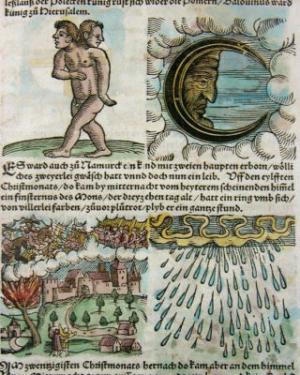 leßlauß der Polecken künig rüst sich wider die Pomern / Balduinus ward
künig zů Hierusalem.
ES ward auch zů Namurck ein kind mit zweien haupten erborn / wölli
ches zweyerley gwäsch hatt vnnd doch nun ein leib. Vff den eylfften
Christmonats / do kam by mitternacht vom heyterem scheinenden himel
ein finsternus des Mons / der dreyzehen tag alt / hatt ein ring vmb sich /
von villerlei farben / zůuor plůtrot / plyb er ein gantze stund.
zwenzigisten Christmonats hernach do kam aber an dem himmel